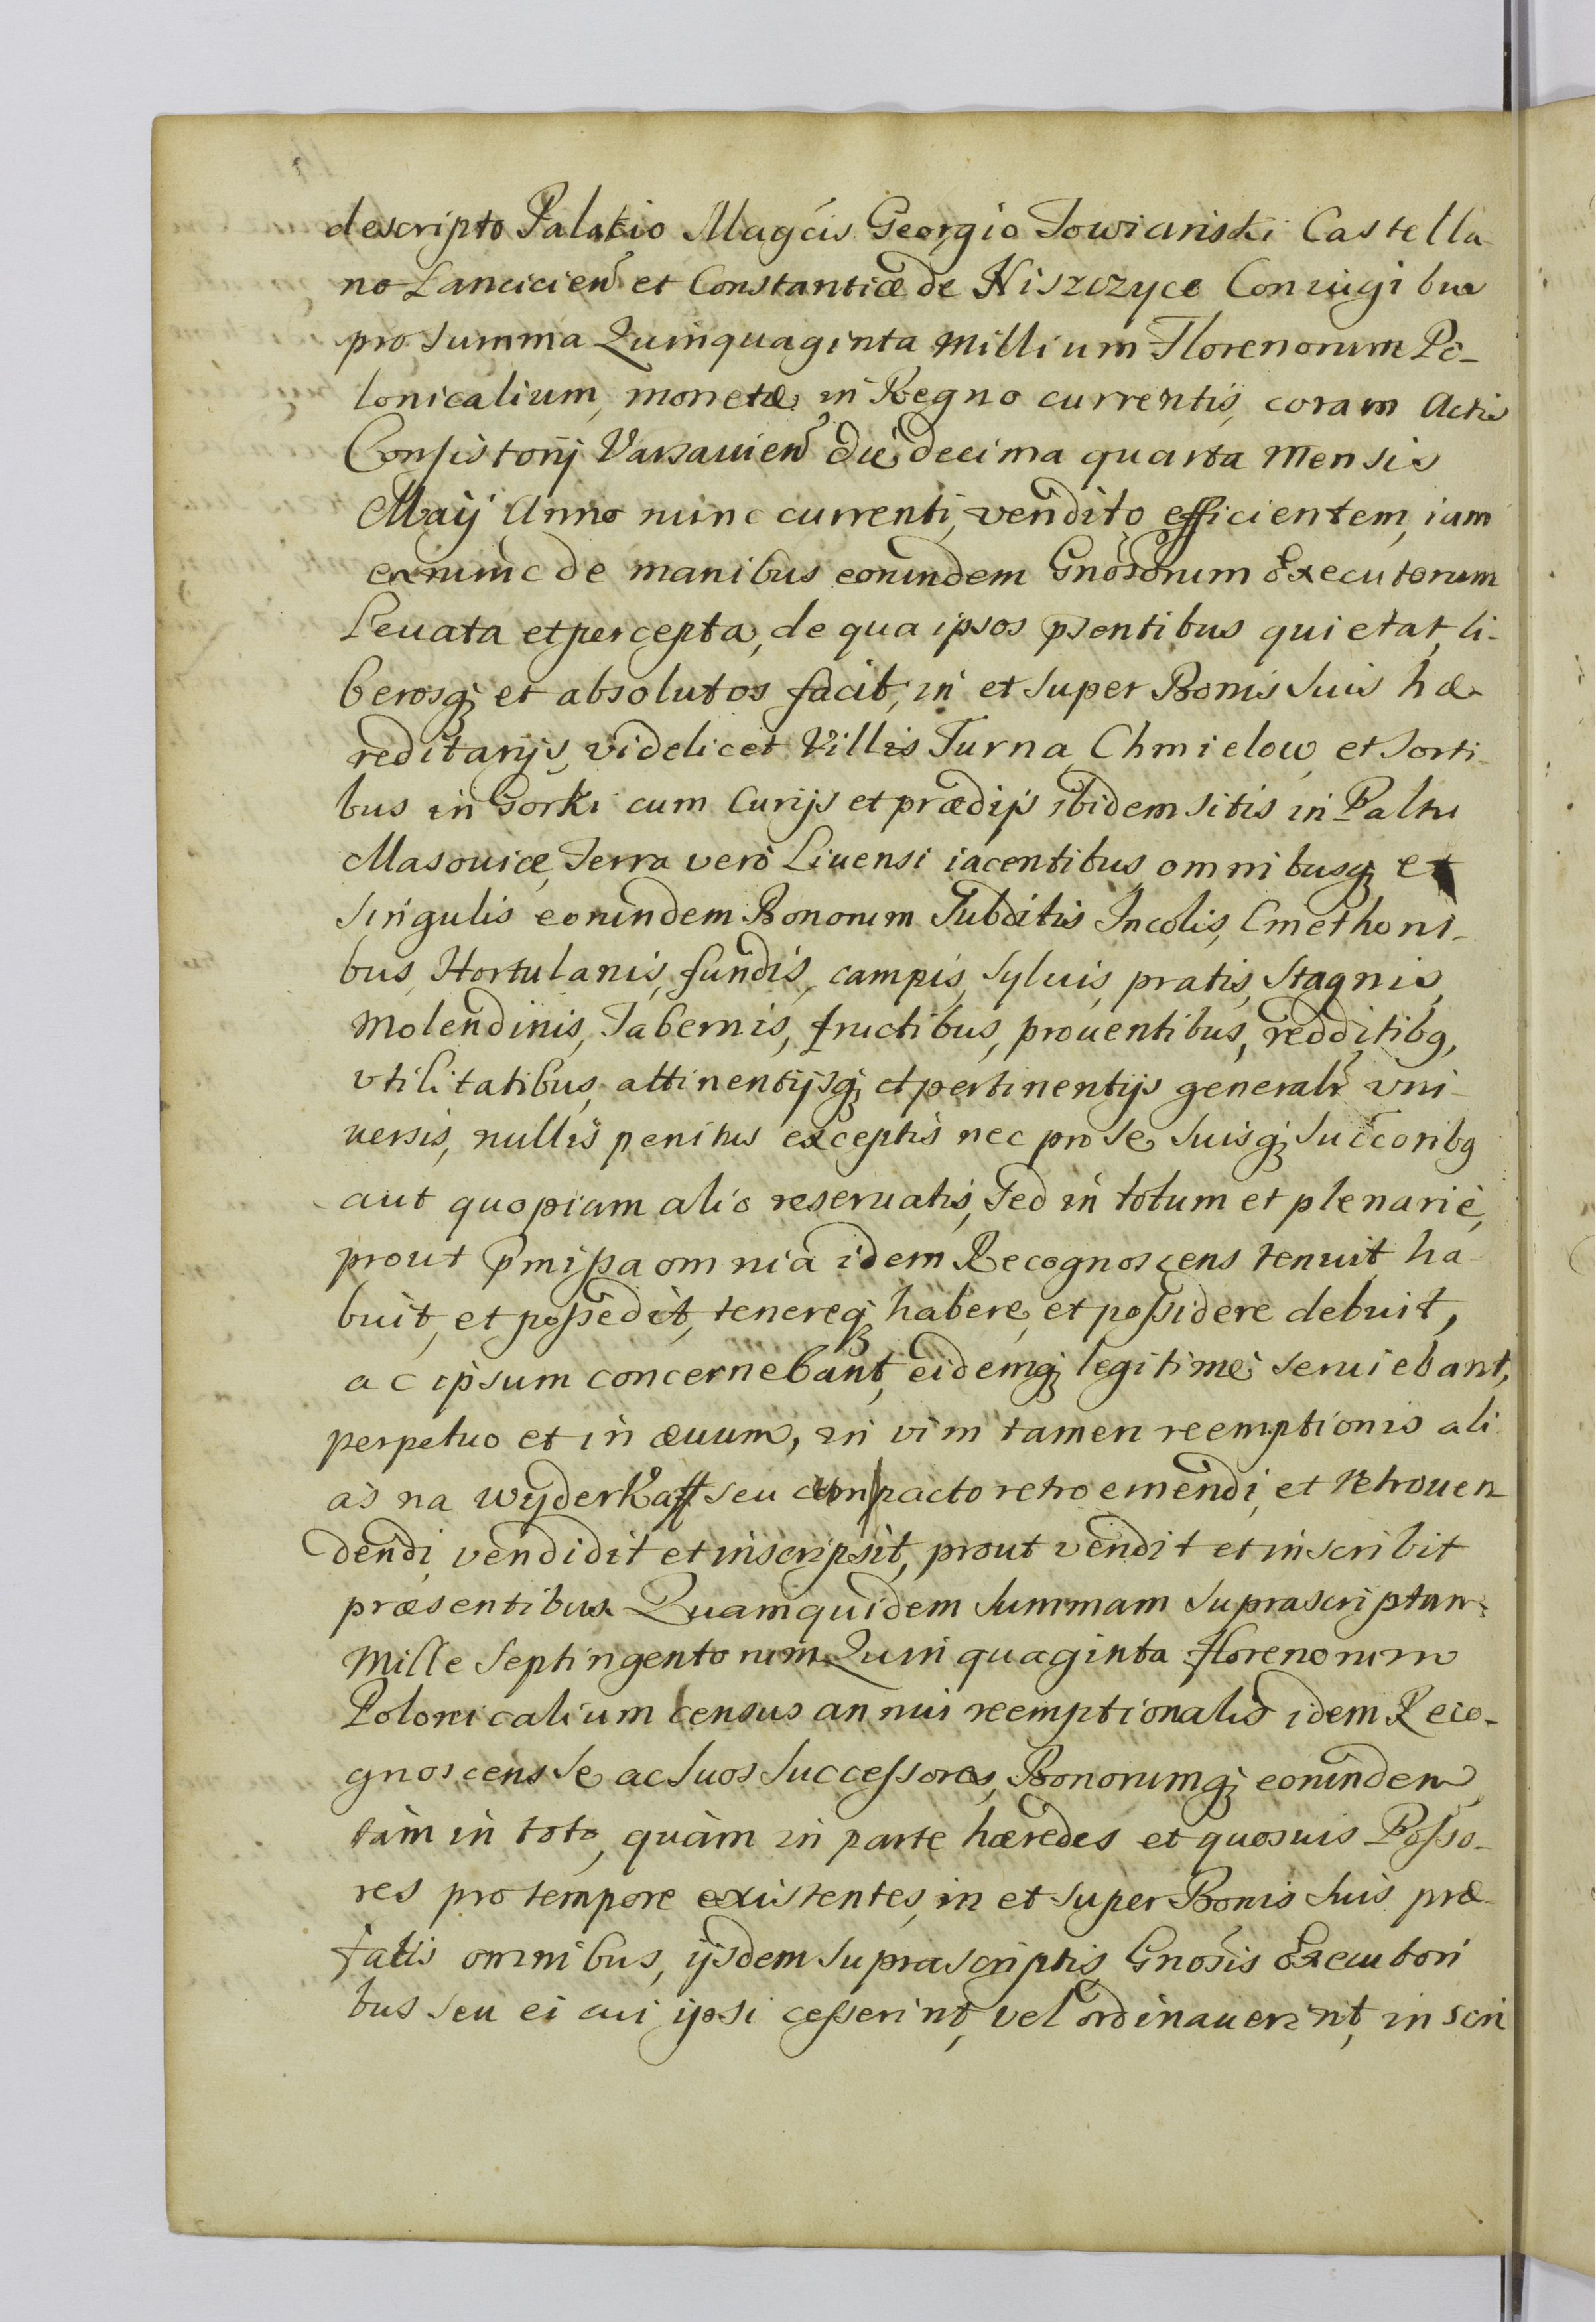 descripto Palatio Magcis Georgio Towianski Castella
no Lancicien et Constantiæ de Niszczyce Coniugibus
pro summa Quinquaginta Millium Florenorum Po-
lonicalium, monetæ in Regno currentis, coram Actis
Consistorij Varsauien die decima quarta Mensis
Maij Anno nunc currenti, vendito efficientem, iam
exnunc de manibus eorundem Gnosorum Executorum
Leuata et percepta, de qua ipsos pntibus quietat, li-
berosq; et absolutos facit, in et super Bonis suis hæ-
reditarijs, videlicet Villis Turna, Chmielow, et sorti-
bus in Gorki cum Curijs et prædijs ibidem sitis in Paltu
Masouiæ, Terra verò Liuensi iacentibus, omnibusq; et
singulis eorundem Bonorum Subditis Incolis, Cmethoni-
bus, Hortulanis, fundis, campis, syluis, pratis, Stagnis,
Molendinis, Tabernis, fructibus, prouentibus, redditibq,
vtilitatibus, attinentijsq; et pertinentijs generalr vni-
uersis, nullis penitus exceptis nec pro se, suisq; succoribq
aut quopiam alio reseruatis, sed in totum et plenariè,
prout pmissa omnia idem Recognoscens tenuit, ha-
buit, et possedit, tenereq; habere, et possidere debuit,
ac ipsum concernebant, eidemq; legitimè seruiebant,
perpetuo et in æuum, in vim tamen reemptionis ali-
as na wyderkaff seu cum pacto retroemendi, et retrouen-
dendi, vendidit et inscripsit, prout vendit et inscribit
præsentibus. Quamquidem summam suprascriptam
Mille Septingentorum Quinquaginta florenorum
Polonicalium census annui reemptionalis idem Reco-
gnoscens se ac suos successores, Bonorumq; eorundem,
tàm in toto, quàm in parte hæredes et quosuis Posso-
res pro tempore existentes, in et super Bonis suis præ-
fatis omnibus, ijsdem suprascriptis Gnosis Executori
bus seu ei cui ipsi cesserint, vel ordinauerint, inscri